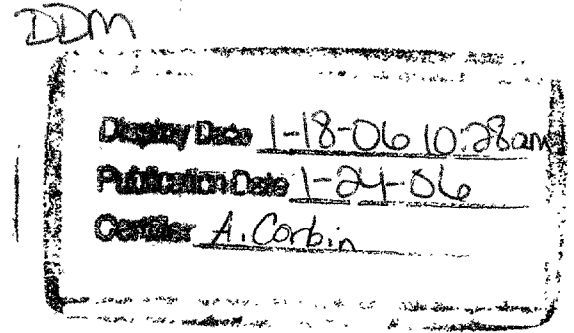 DDM
Display Date 1-18-06 10:28am
Publication Date 1-24-06
Certifier A. Corbin